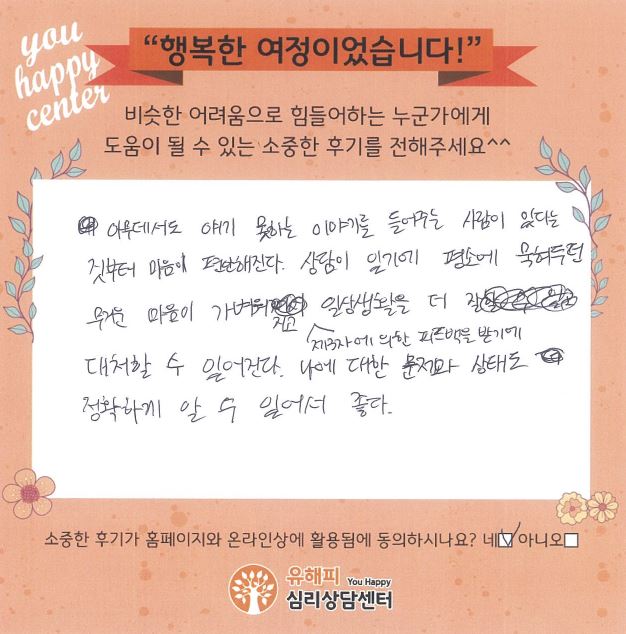 you
happy
center
“행복한 여정이었습니다!”
비슷한 어려움으로 힘들어하는 누군가에게
도움이 될 수 있는 소중한 후기를 전해주세요^^
아무데서도 얘기 못하는 이야기를 들어주는 사람이 있다는
것부터 마음이 편안해진다. 상담이 있기에 평소에 묵혀두던
무거운 마음이 가벼워지고 일상생활을 더 잘
제3자에 의한 피드백을 받기에
대처할 수 있어진다. 나에 대한 문제와 상태도
정확하게 알 수 있어서 좋다.
소중한 후기가 홈페이지와 온라인상에 활용됨에 동의하시나요? 네 아니오
유해피 You Happy
심리상담센터